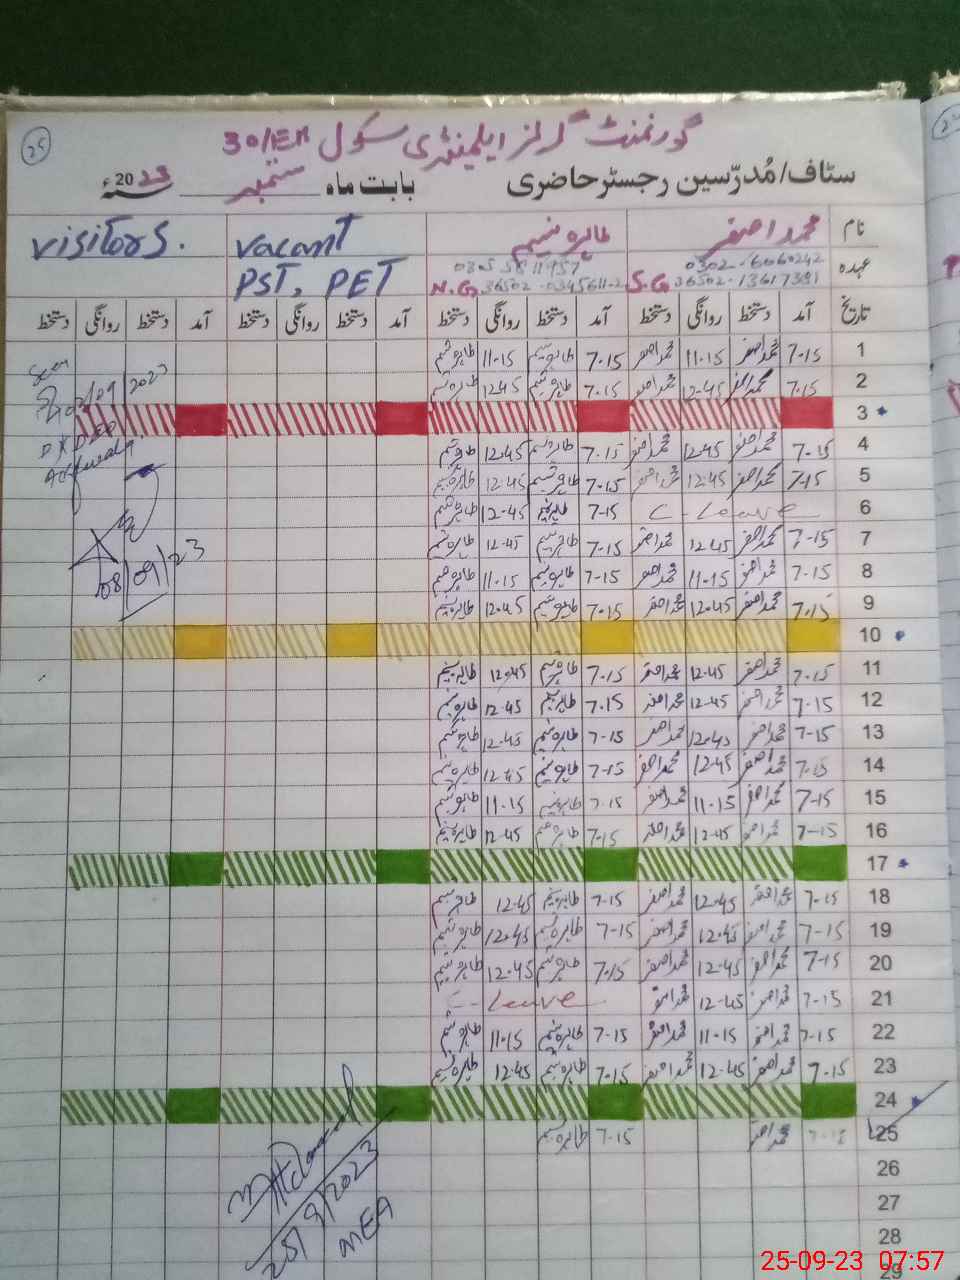 25
گورنمنٹ گرلز ایلیمنٹری سکول 30/EB
سٹاف/مُدرّسین رجسٹر حاضری بابت ماہ ستمبر 2023ء
نام محمد اصغر طاہرہ نسیم vacant visitors.
عہدہ 0302-6660242 0305 5811957 PST, PET
S.G 36502-13617381 N.G
تاریخ آمد دستخط روانگی دستخط آمد دستخط روانگی دستخط آمد دستخط روانگی دستخط آمد دستخط روانگی دستخط
1 7-15 محمد اصغر 11-15 محمد اصغر 7-15 طاہرہ نسیم 11-15 طاہرہ نسیم
2 7-15 محمد اصغر 12-45 محمد اصغر 7-15 طاہرہ نسیم 12-45 طاہرہ نسیم /09/2023
3
4 7-15 محمد اصغر 12-45 محمد اصغر 7-15 طاہرہ نسیم 12-45 طاہرہ نسیم
5 7-15 محمد اصغر 12-45 محمد اصغر 7-15 طاہرہ نسیم 12-45 طاہرہ نسیم
6 C-Leave 7-15 طاہرہ نسیم 12-45 طاہرہ نسیم
7 7-15 محمد اصغر 12-45 محمد اصغر 7-15 طاہرہ نسیم 12-45 طاہرہ نسیم
8 7-15 محمد اصغر 11-15 محمد اصغر 7-15 طاہرہ نسیم 11-15 طاہرہ نسیم 08/09/23
9 7-15 محمد اصغر 12-45 محمد اصغر 7-15 طاہرہ نسیم 12-45 طاہرہ نسیم
10
11 7-15 محمد اصغر 12-45 محمد اصغر 7-15 طاہرہ نسیم 12-45 طاہرہ نسیم
12 7-15 محمد اصغر 12-45 محمد اصغر 7-15 طاہرہ نسیم 12-45 طاہرہ نسیم
13 7-15 محمد اصغر 12-45 محمد اصغر 7-15 طاہرہ نسیم 12-45 طاہرہ نسیم
14 7-15 محمد اصغر 12-45 محمد اصغر 7-15 طاہرہ نسیم 12-45 طاہرہ نسیم
15 7-15 محمد اصغر 11-15 محمد اصغر 7-15 طاہرہ نسیم 11-15 طاہرہ نسیم
16 7-15 محمد اصغر 12-45 محمد اصغر 7-15 طاہرہ نسیم 12-45 طاہرہ نسیم
17
18 7-15 محمد اصغر 12-45 محمد اصغر 7-15 طاہرہ نسیم 12-45 طاہرہ نسیم
19 7-15 محمد اصغر 12-45 محمد اصغر 7-15 طاہرہ نسیم 12-45 طاہرہ نسیم
20 7-15 محمد اصغر 12-45 محمد اصغر 7-15 طاہرہ نسیم 12-45 طاہرہ نسیم
21 7-15 محمد اصغر 12-45 محمد اصغر C-Leave
22 7-15 محمد اصغر 11-15 محمد اصغر 7-15 طاہرہ نسیم 11-15 طاہرہ نسیم
23 7-15 محمد اصغر 12-45 محمد اصغر 7-15 طاہرہ نسیم 12-45 طاہرہ نسیم
24
25 7-15 محمد اصغر 7-15 طاہرہ نسیم
26
27
28
29
25/9/2023
MEA
25-09-23 07:57